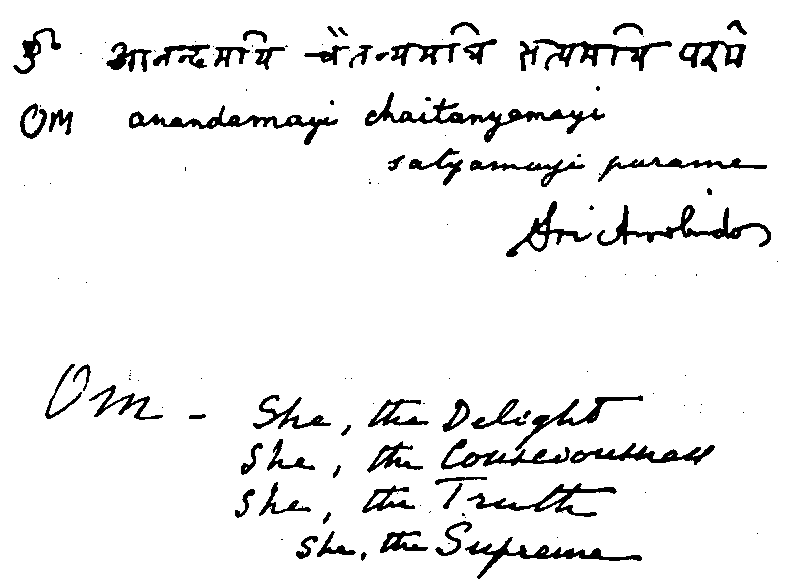 ॐ आनन्दमयि चैतन्यमयि सत्यमयि परमे
OM anandamayi chaitanyamayi
satyamayi parame
Sri Aurobindo
Om - She, the Delight
She, the Consciousness
She, the Truth
She, the Supreme